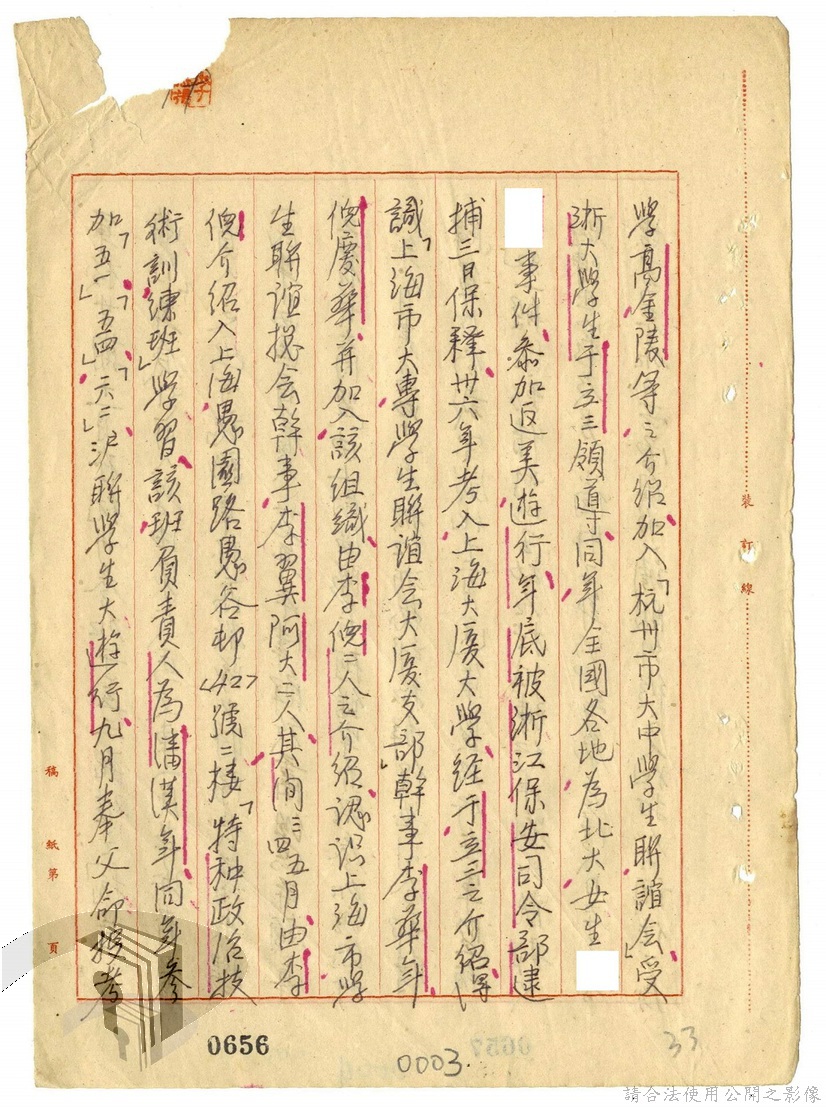 學高金陵等之介紹加入「杭州市大中學生聯誼会」受
浙大學生于立三領導同年全國各地為北大女生
事件參加返美遊行年底被浙江保安司令部逮
捕三日保釋卅六年考入上海大廈大學經于立三之介紹得
識「上海市大專學生聯誼会大廈支部」幹事李華年
倪慶華并加入該組織由李倪二人之介紹認识上海市學
生聯誼总会幹事李翼阿大二人其间三四五月由李
倪介绍入上海愚園路愚谷邨42號二楼「特种政治技
術訓練班」學習該班負責人為潘漢年同年參
加「五一」「五四」「六二」沪聯學生大遊行九月奉父命投考
裝訂線
稿紙第 頁
0656
0003.
33
請合法使用公開之影像